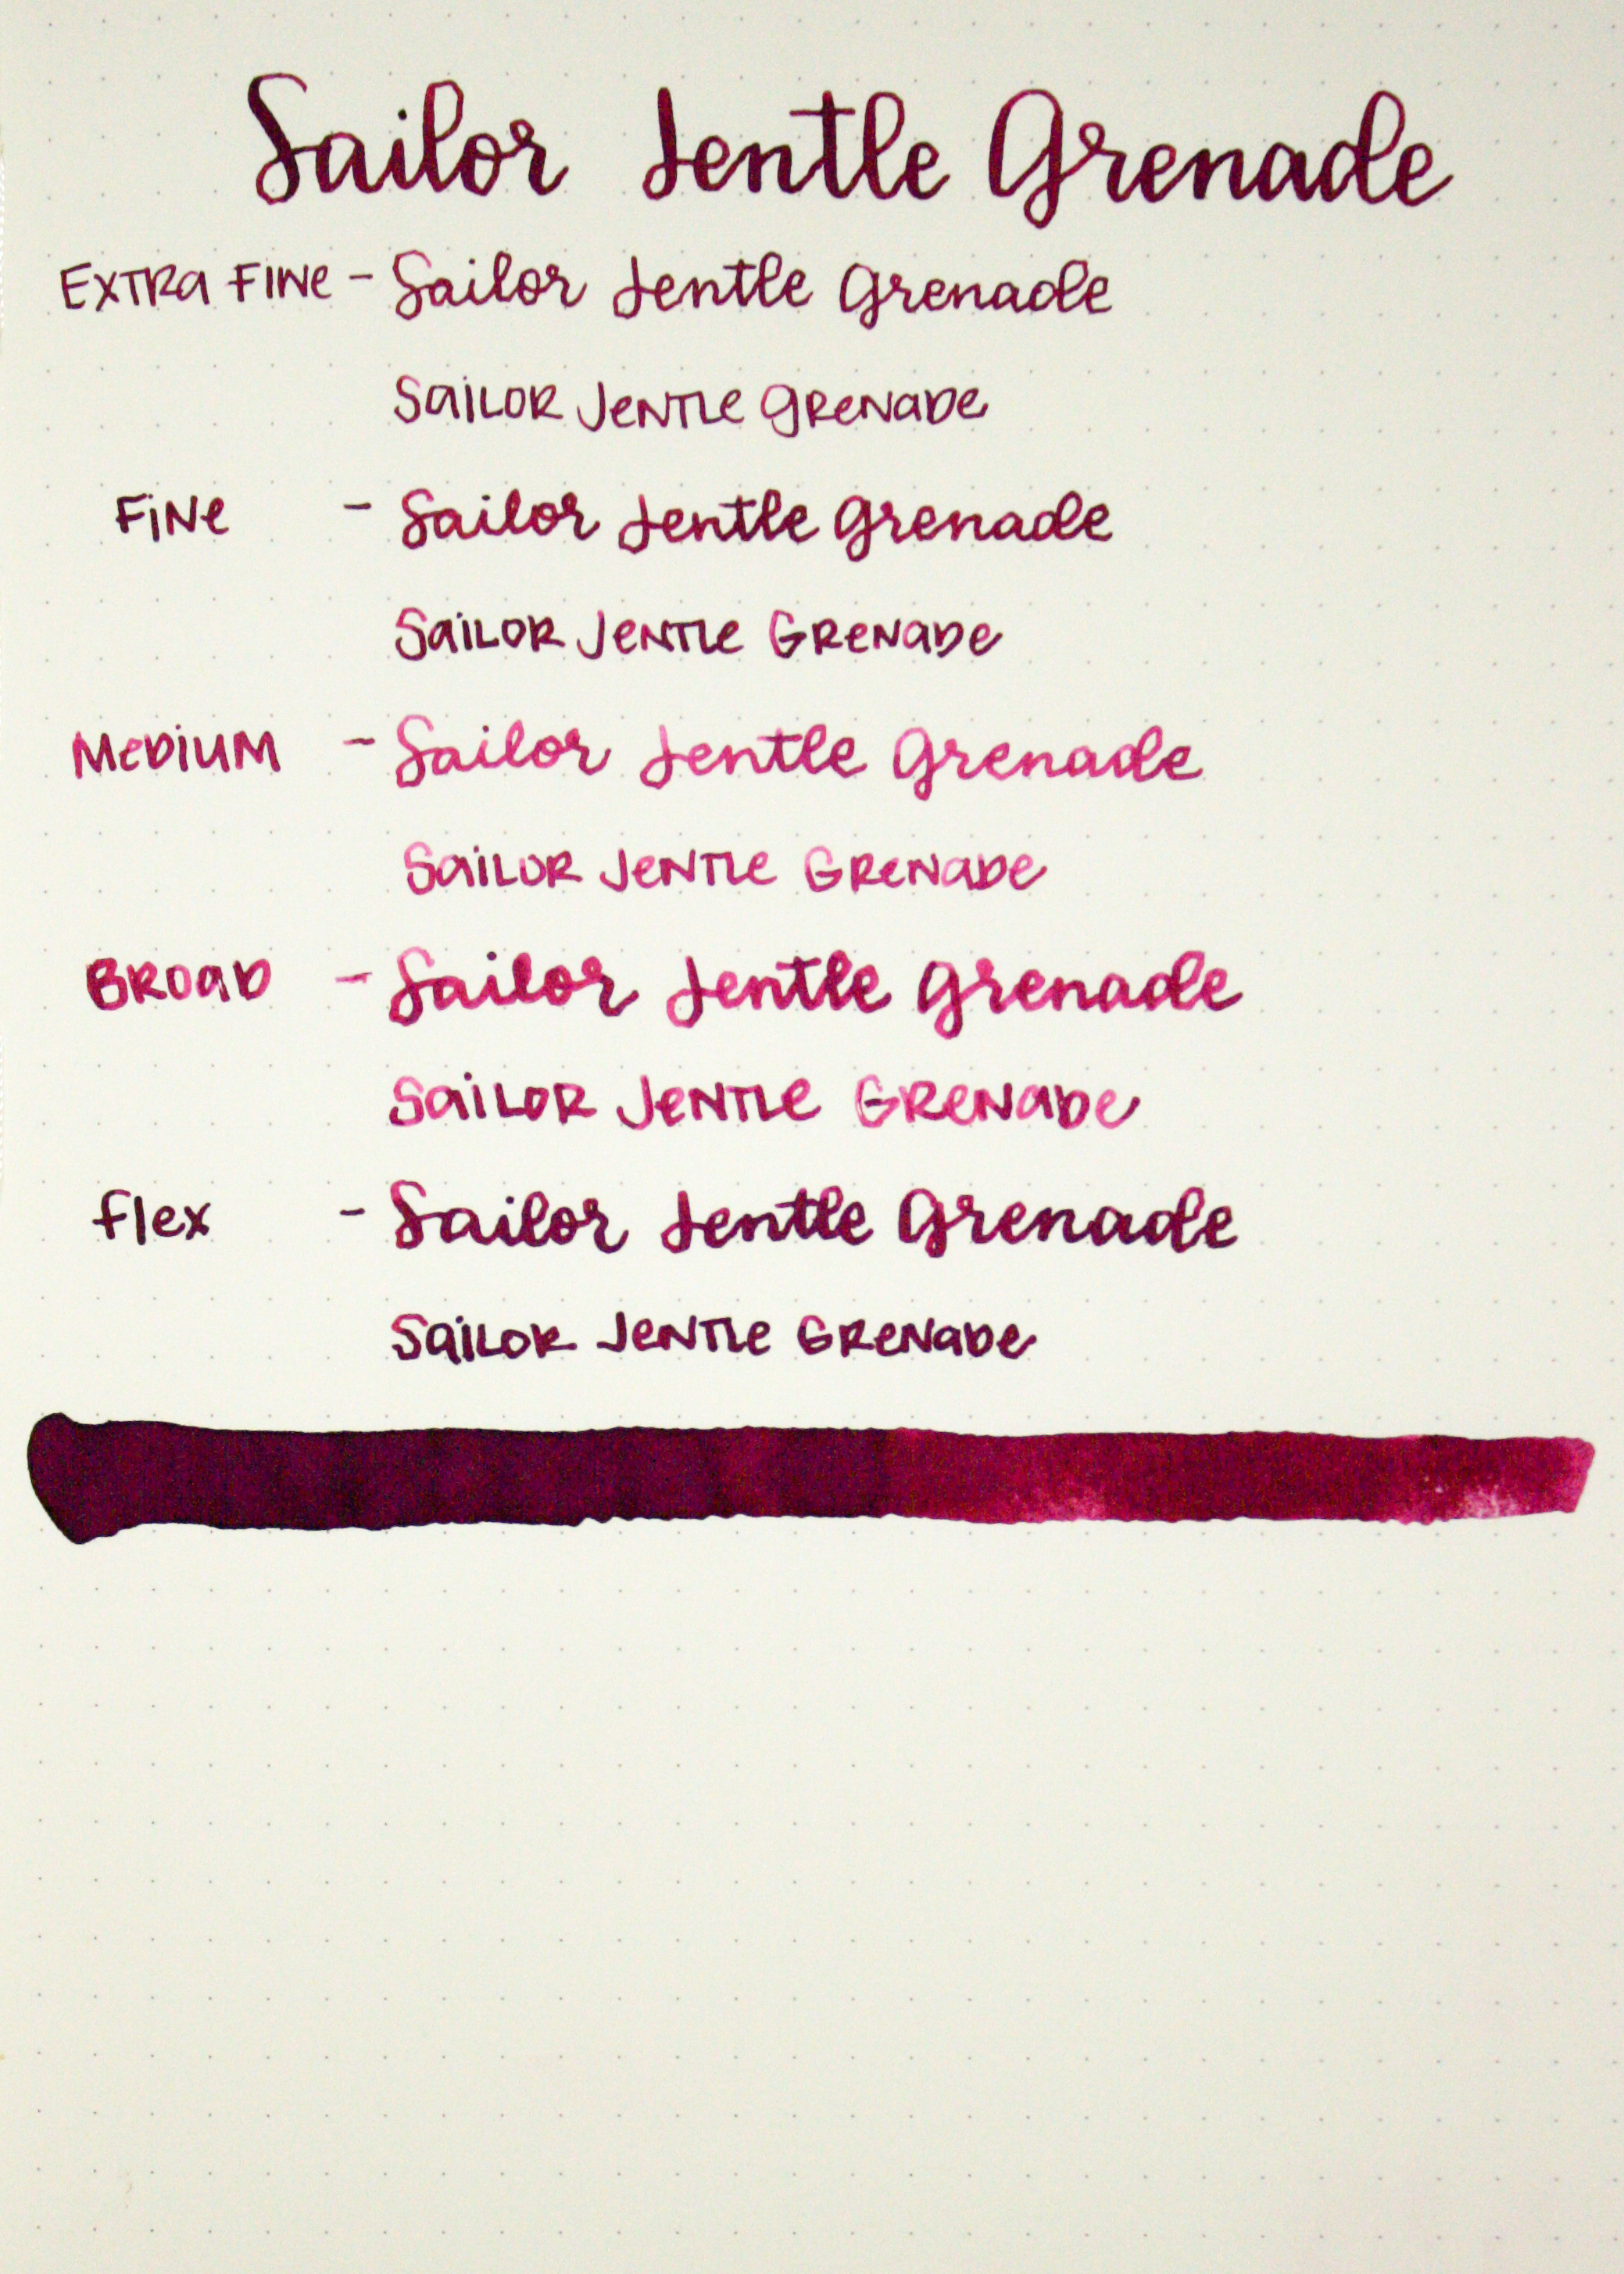 Sailor Jentle Grenade
EXTRA FINE - Sailor Jentle Grenade
SAILOR JENTLE GRENADE
FINE - Sailor Jentle Grenade
SAILOR JENTLE GRENADE
MEDIUM - Sailor Jentle Grenade
SAILOR JENTLE GRENADE
BROAD - Sailor Jentle Grenade
SAILOR JENTLE GRENADE
Flex - Sailor Jentle Grenade
SAILOR JENTLE GRENADE